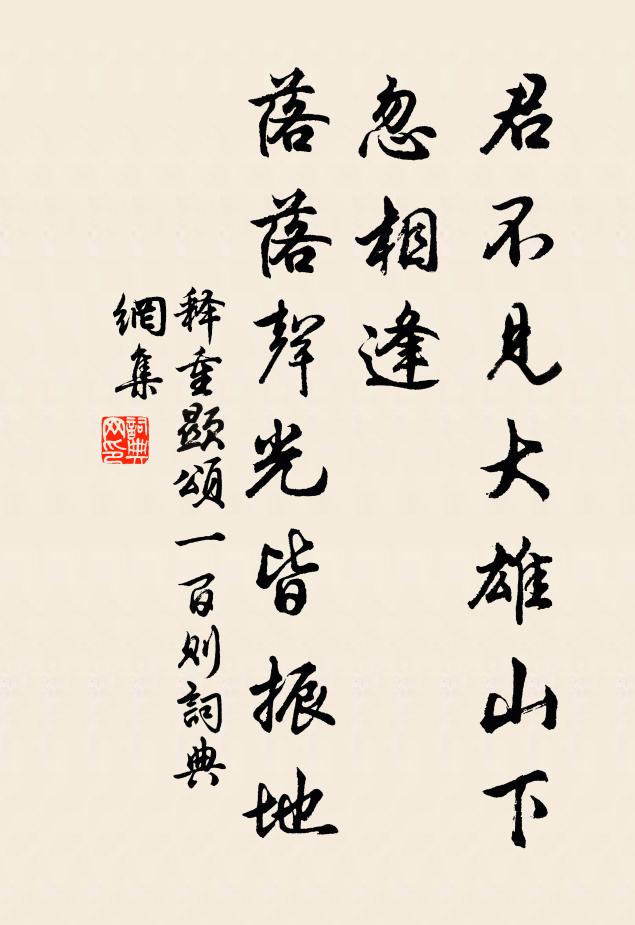 君不见大雄山下
忽相逢
落落聲光皆振地
释重顯頌一百则詞典
網集
詞典
网印